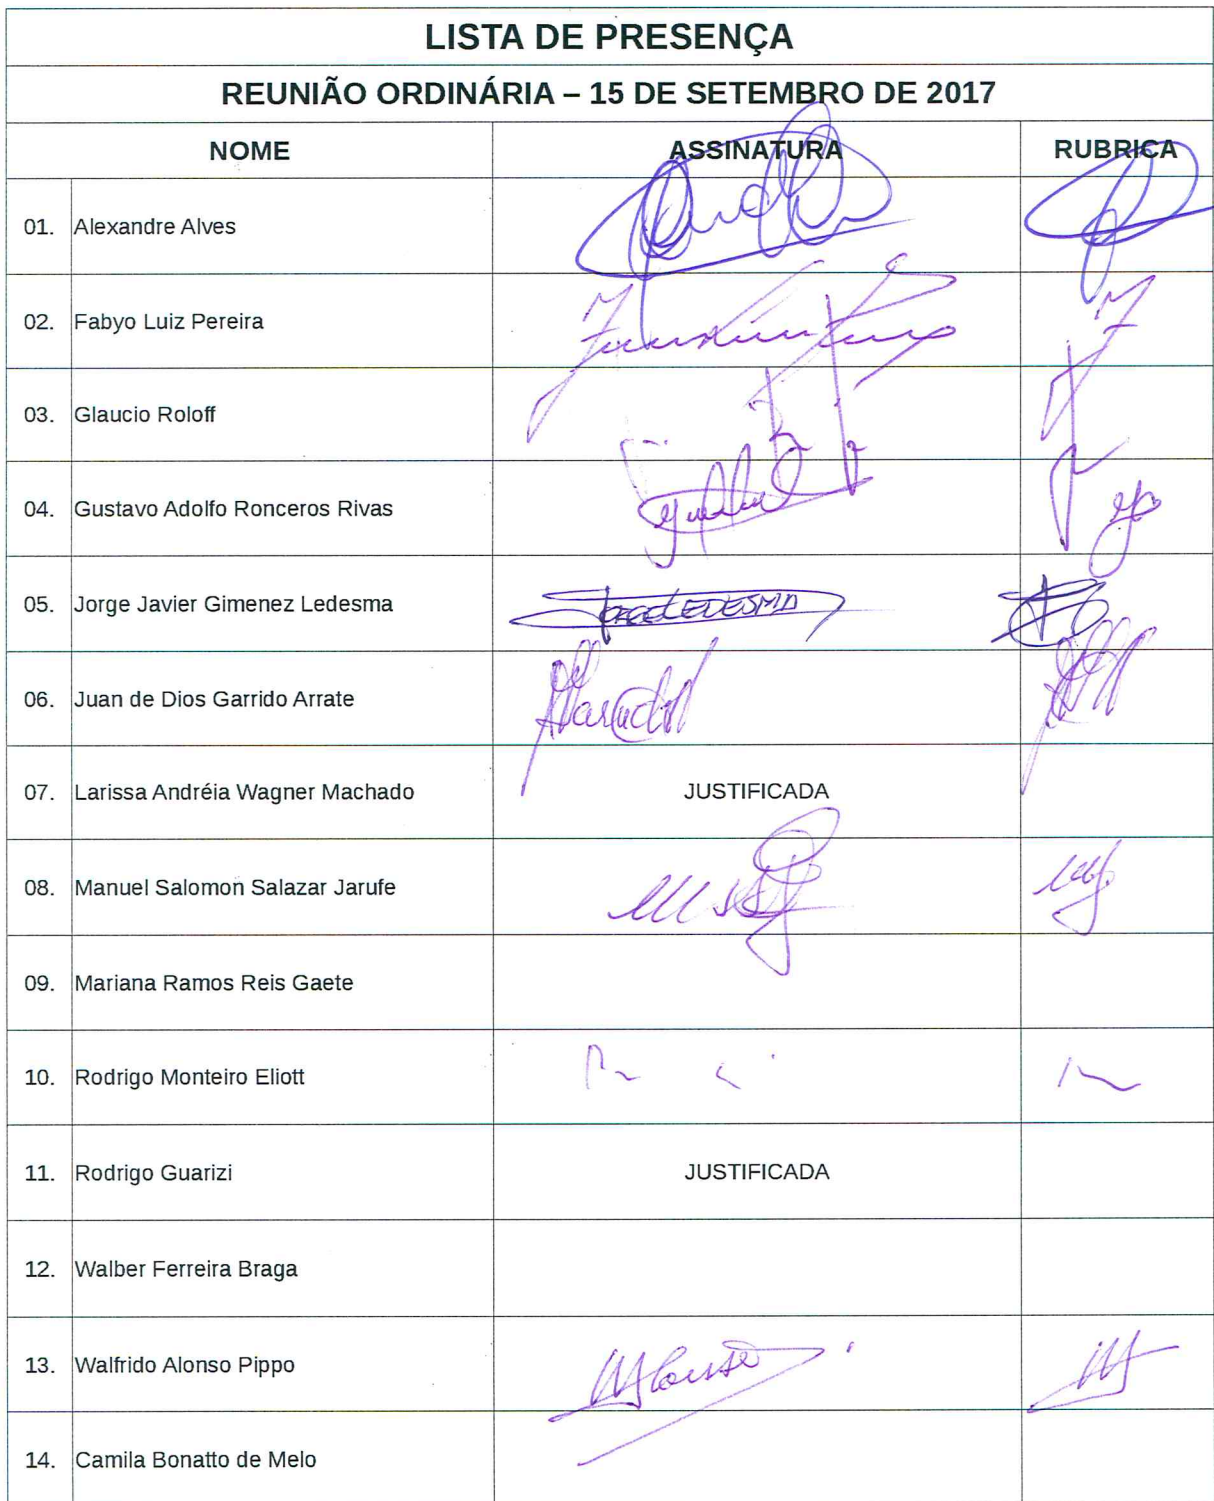 LISTA DE PRESENÇA
REUNIÃO ORDINÁRIA – 15 DE SETEMBRO DE 2017
NOME ASSINATURA RUBRICA
01. Alexandre Alves
02. Fabyo Luiz Pereira
03. Glaucio Roloff
04. Gustavo Adolfo Ronceros Rivas
05. Jorge Javier Gimenez Ledesma JORGE LEDESMA
06. Juan de Dios Garrido Arrate
07. Larissa Andréia Wagner Machado JUSTIFICADA
08. Manuel Salomon Salazar Jarufe
09. Mariana Ramos Reis Gaete
10. Rodrigo Monteiro Eliott
11. Rodrigo Guarizi JUSTIFICADA
12. Walber Ferreira Braga
13. Walfrido Alonso Pippo
14. Camila Bonatto de Melo